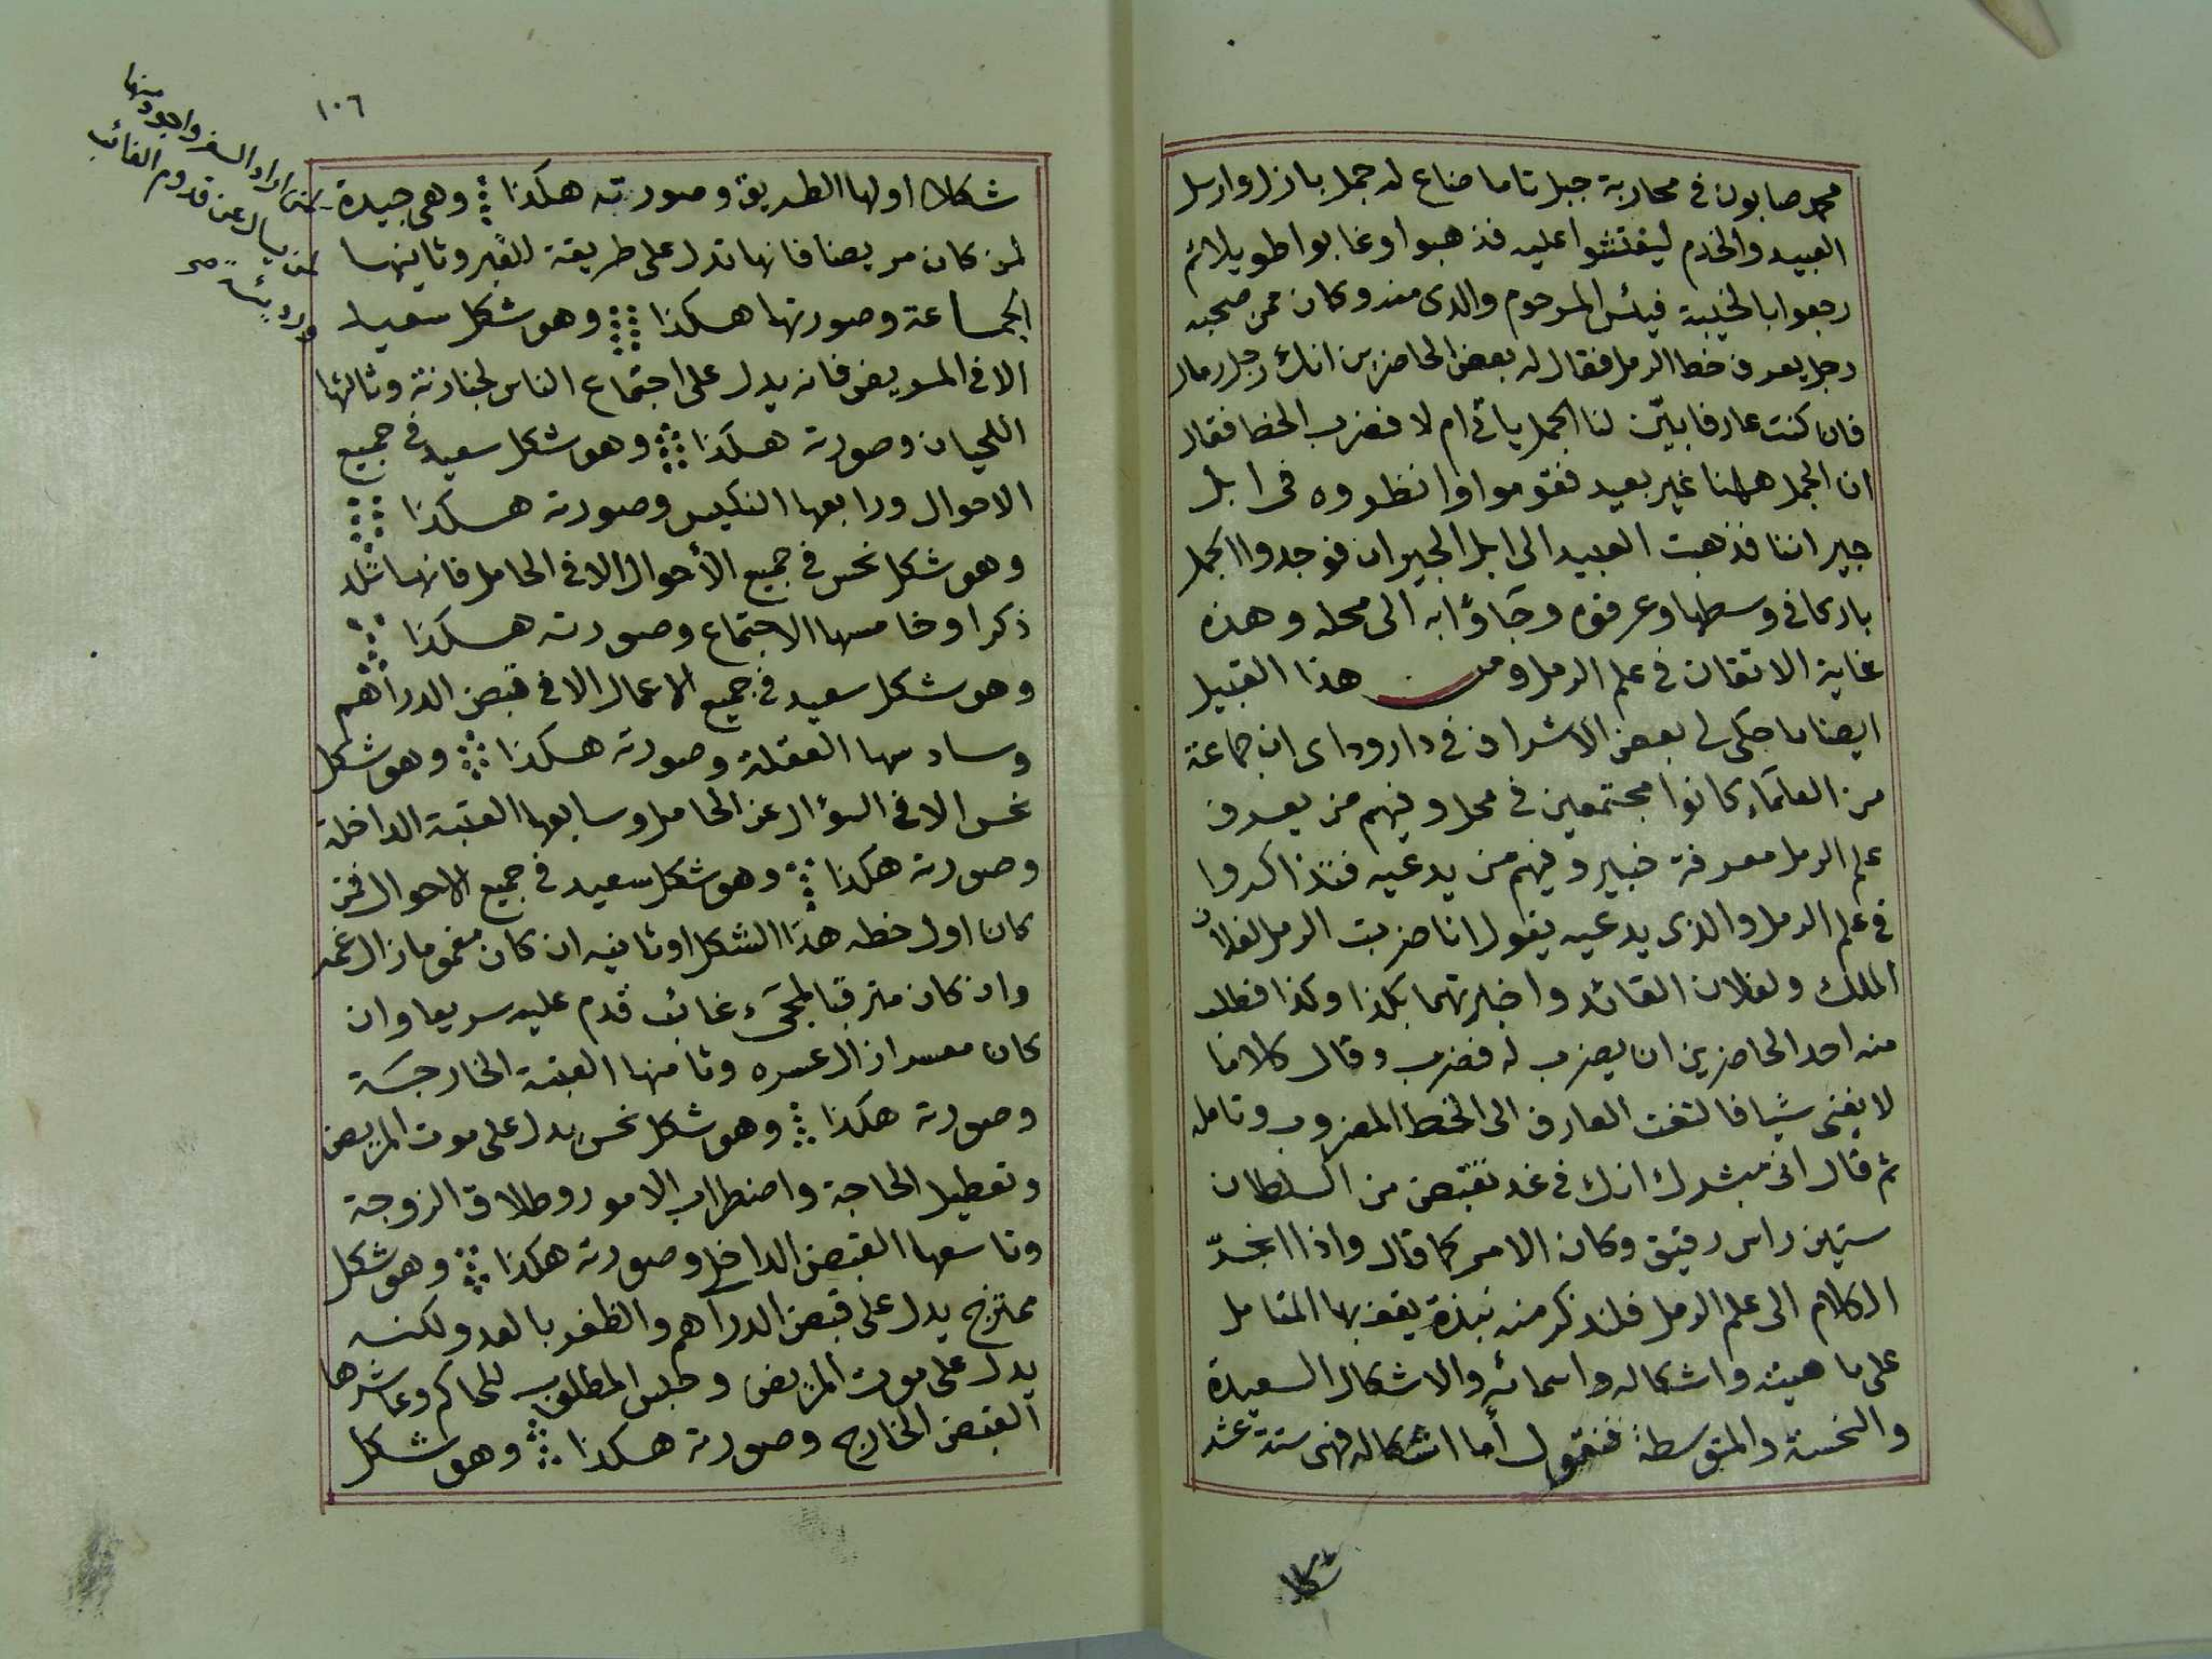 محمد صابون في محاربة جبل تاما ضاع له جمل بازل وارسل
العبيد والخدم ليفتشوا عليه فذهبوا وغابوا طويلا ثم
رجعوا بالخيبة فيئس المرحوم والدى منه وكان ممن صحبه
رجل يعرف خط الرمل فقال له بعض الحاضرين انك رجل رمال
فان كنت عارفا بيّن لنا الجمل ياتي ام لا فضرب الخط فقال
ان الجمل هاهنا غير بعيد فقوموا وانظروه في ابل
جيراننا فذهبت العبيد الى ابل الجيران فوجدوا الجمل
باركا في وسطها وعرفوه وجاؤا به الى محله وهذه
غاية الاتقان في علم الرمل ومن هذا القبيل
ايضا ما حكى لى بعض الاشراف في دار وداى ان جماعة
من العلمآء كانوا مجتمعين في محل وفيهم من يعرف
علم الرمل معرفة خبير وفيهم من يدعيه فتذاكروا
في علم الرمل والذى يدعيه يقول انا ضربت الرمل لفلان
الملك ولفلان القائد واخبرتهما بكذا وكذا فطلب
منه احد الحاضرين ان يضرب له فضرب وقال كلاما
لا يغنى شيا فالتفت العارف الى الخط المضروب وتامله
ثم قال انى مبشرك انك في غد تقبض من السلطان
ستين راس رقيق وكان الامر كما قال واذا انجرّ
الكلام الى علم الرمل فلنذكر منه نبذة يقف بها المتامل
على ماهيته واشكاله واسمائه والاشكال السعيدة
والنحسة والمتوسطة فنقول أما اشكاله فهى ستة عشر
شكلا
١٠٦
شكلا اولها الطريق وصورته هكذا وهى جيدة
لمن كان مريضا فانها تدل على طريقة القبر وثانيها
الجماعة وصورتها هكذا وهو شكل سعيد
الا في المريض فانه يدل على اجتماع الناس لجنازته وثالثها
اللحيان وصورته هكذا وهو شكل سعيد في جميع
الاحوال ورابعها النكيس وصورته هكذا
وهو شكل نحس في جميع الأحوال الا في الحامل فانها تلد
ذكرا وخامسها الاجتماع وصورته هكذا
وهو شكل سعيد في جميع الاعمال الا في قبض الدراهم
وسادسها العقلة وصورته هكذا وهو شكل
نحس الا في السؤال عن الحامل وسابعها العتبة الداخلة
وصورته هكذا وهو شكل سعيد في جميع الاحوال فمن
كان اول خطه هذا الشكل او ثانيه ان كان مغموما زال غمه
وان كان مترقبا لمجىء غائب قدم عليه سريعا وان
كان معسرا زال عسره وثامنها العتبة الخارجة
وصورته هكذا وهو شكل نحس يدل على موت المريض
وتعطيل الحاجة واضطراب الامور وطلاق الزوجة
وتاسعها القبض الداخل وصورته هكذا وهو شكل
ممتزج يدل على قبض الدراهم والظفر بالعدو لكنه
يدل على موت المريض وحبس المطلوب للحاكم وعاشرها
القبض الخارج وصورته هكذا وهو شكل
لمن اراد السفر واجود منها
لمن يسال عن قدوم الغائب
ورديئة صح